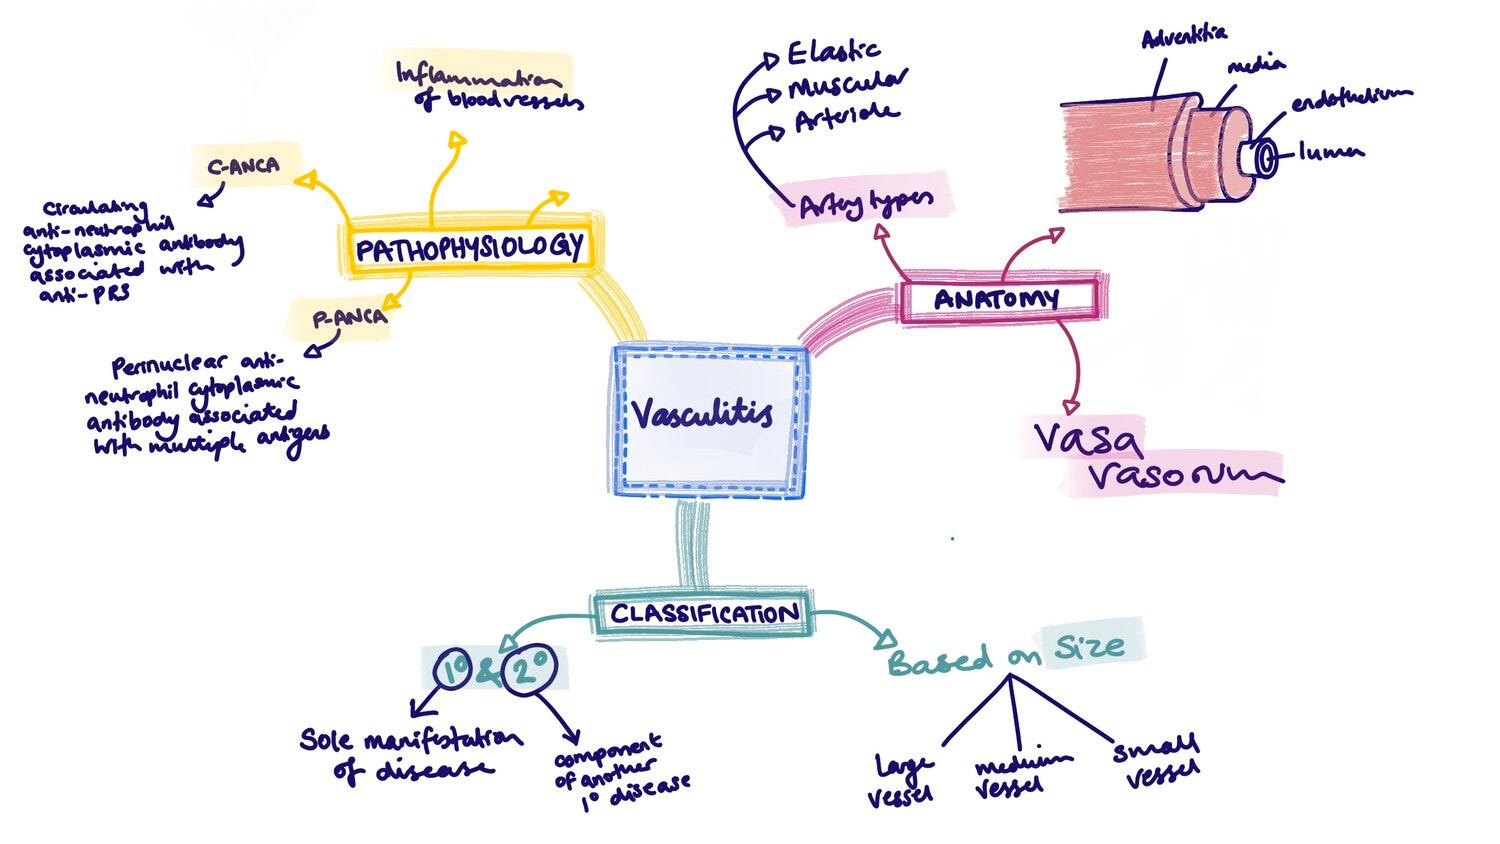 Vasculitis
PATHOPHYSIOLOGY
Inflammation
of blood vessels
C-ANCA
Circulating
anti-neutrophil
cytoplasmic antibody
associated with
anti-PR3
P-ANCA
Perinuclear anti-
neutrophil cytoplasmic
antibody associated
with multiple antigens
ANATOMY
Artery types
Elastic
Muscular
Arteriole
Adventitia
media
endothelium
lumen
Vasa
vasorum
CLASSIFICATION
1° & 2°
Sole manifestation
of disease
component
of another
1° disease
Based on Size
Large
vessel
medium
vessel
small
vessel